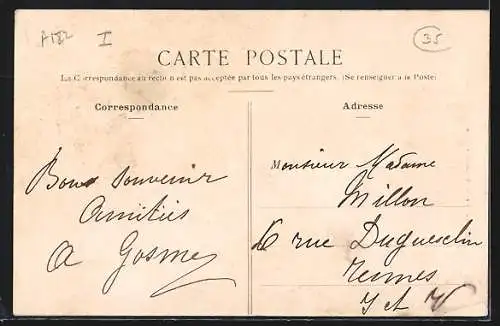 A182 I
35
CARTE POSTALE
La Correspondance au recto n'est pas acceptée par tous les pays étrangers. (Se renseigner à la Poste)
Correspondance
Adresse
Bons souvenir
Amitiés
A Gosme
Monsieur Madame
Millon
6 rue Duguesclin
Rennes
I et V